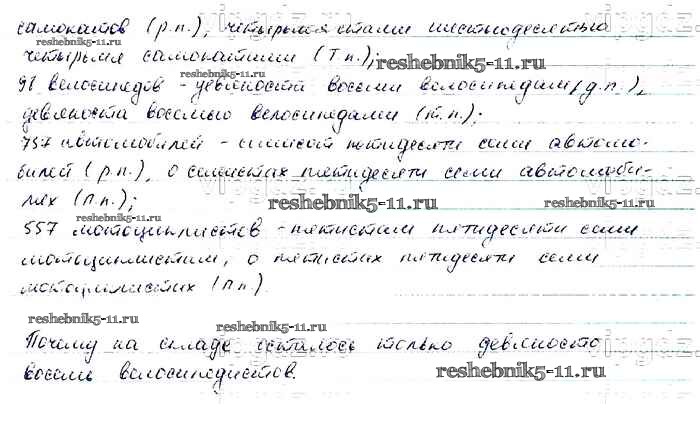 самокатов (р.п.), четырьмя стами шестьюдесятью
четырьмя самокатами (Т.п.);
98 велосипедов - девяноста восьми велосипедам (д.п.),
девяноста восемью велосипедами (т.п.);
757 автомобилей - семисот пятидесяти семи автомо-
билей (р.п.), о семистах пятидесяти семи автомоби-
лях (п.п.);
557 мотоциклистов - пятистам пятидесяти семи
мотоциклистам, о пятистах пятидесяти семи
мотоциклистах (п.п.).
Почему на складе осталось только девяносто
восемь велосипедистов.
reshebnik5-11.ru
reshebnik5-11.ru
reshebnik5-11.ru
reshebnik5-11.ru
reshebnik5-11.ru
reshebnik5-11.ru
reshebnik5-11.ru
reshebnik5-11.ru